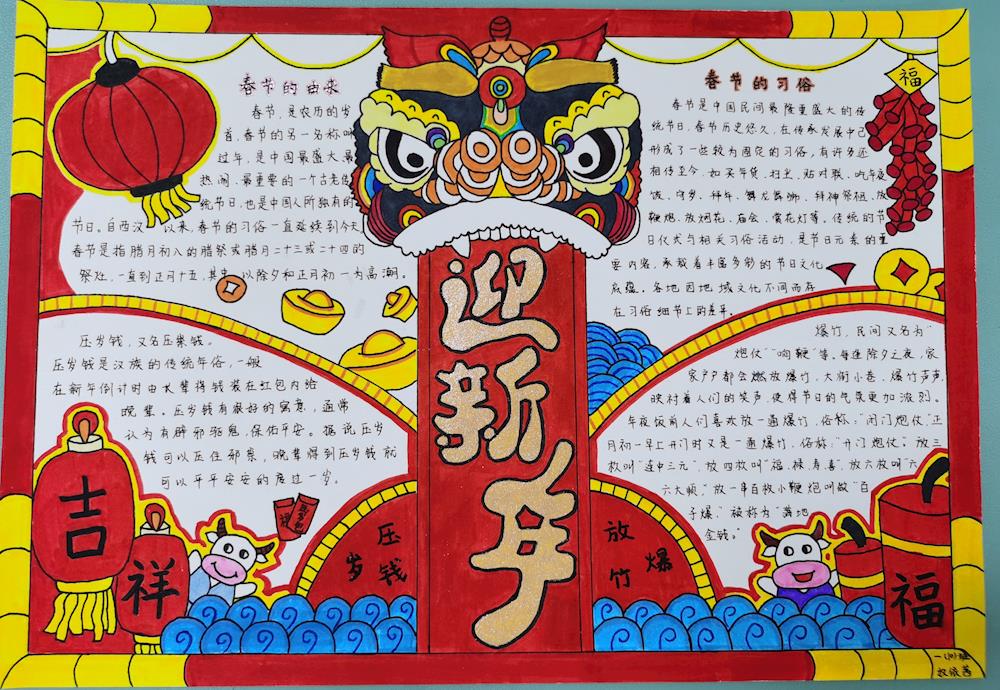 春节的由来
春节，是农历的岁
首，春节的另一名称叫
过年，是中国最盛大最
热闹、最重要的一个古老传
统节日，也是中国人所独有的
节日。自西汉以来，春节的习俗一直延续到今天
春节是指腊月初八的腊祭或腊月二十三或二十四的
祭灶，一直到正月十五，其中以除夕和正月初一为高潮。
春节的习俗
春节是中国民间最隆重盛大的传
统节日，春节历史悠久，在传承发展中已
形成了一些较为固定的习俗，有许多还
相传至今，如买年货、扫尘、贴对联、吃年夜
饭、守岁、拜年、舞龙舞狮、拜神祭祖、放
鞭炮、放烟花、庙会、赏花灯等，传统的节
日仪式与相关习俗活动，是节日元素的重
要内容，承载着丰富多彩的节日文化
底蕴。各地因地域文化不同而存
在习俗细节上的差异。
福
迎新年
压岁钱，又名压祟钱。
压岁钱是汉族的传统年俗，一般
在新年倒计时由长辈将钱装在红包内给
晚辈。压岁钱有很好的寓意，通常
认为有辟邪驱鬼，保佑平安。据说压岁
钱可以压住邪祟，晚辈得到压岁钱就
可以平平安安的度过一岁。
爆竹，民间又名为"
炮仗""响鞭"等。每逢除夕之夜，家
家户户都会燃放爆竹，大街小巷，爆竹声声，
映衬着人们的笑声，使得节日的气氛更加浓烈。
年夜饭前人们喜欢放一通爆竹，俗称："闭门炮仗"，正
月初一早上开门时又是一通爆竹，俗称："开门炮仗"，放三
枚叫"连中三元"，放四枚叫"福、禄、寿、喜"，放六枚叫"六
六大顺"，放一串百枚小鞭炮叫做"百
子爆"，被称为"满地
金钱"。
吉
祥
压岁钱
放爆竹
福